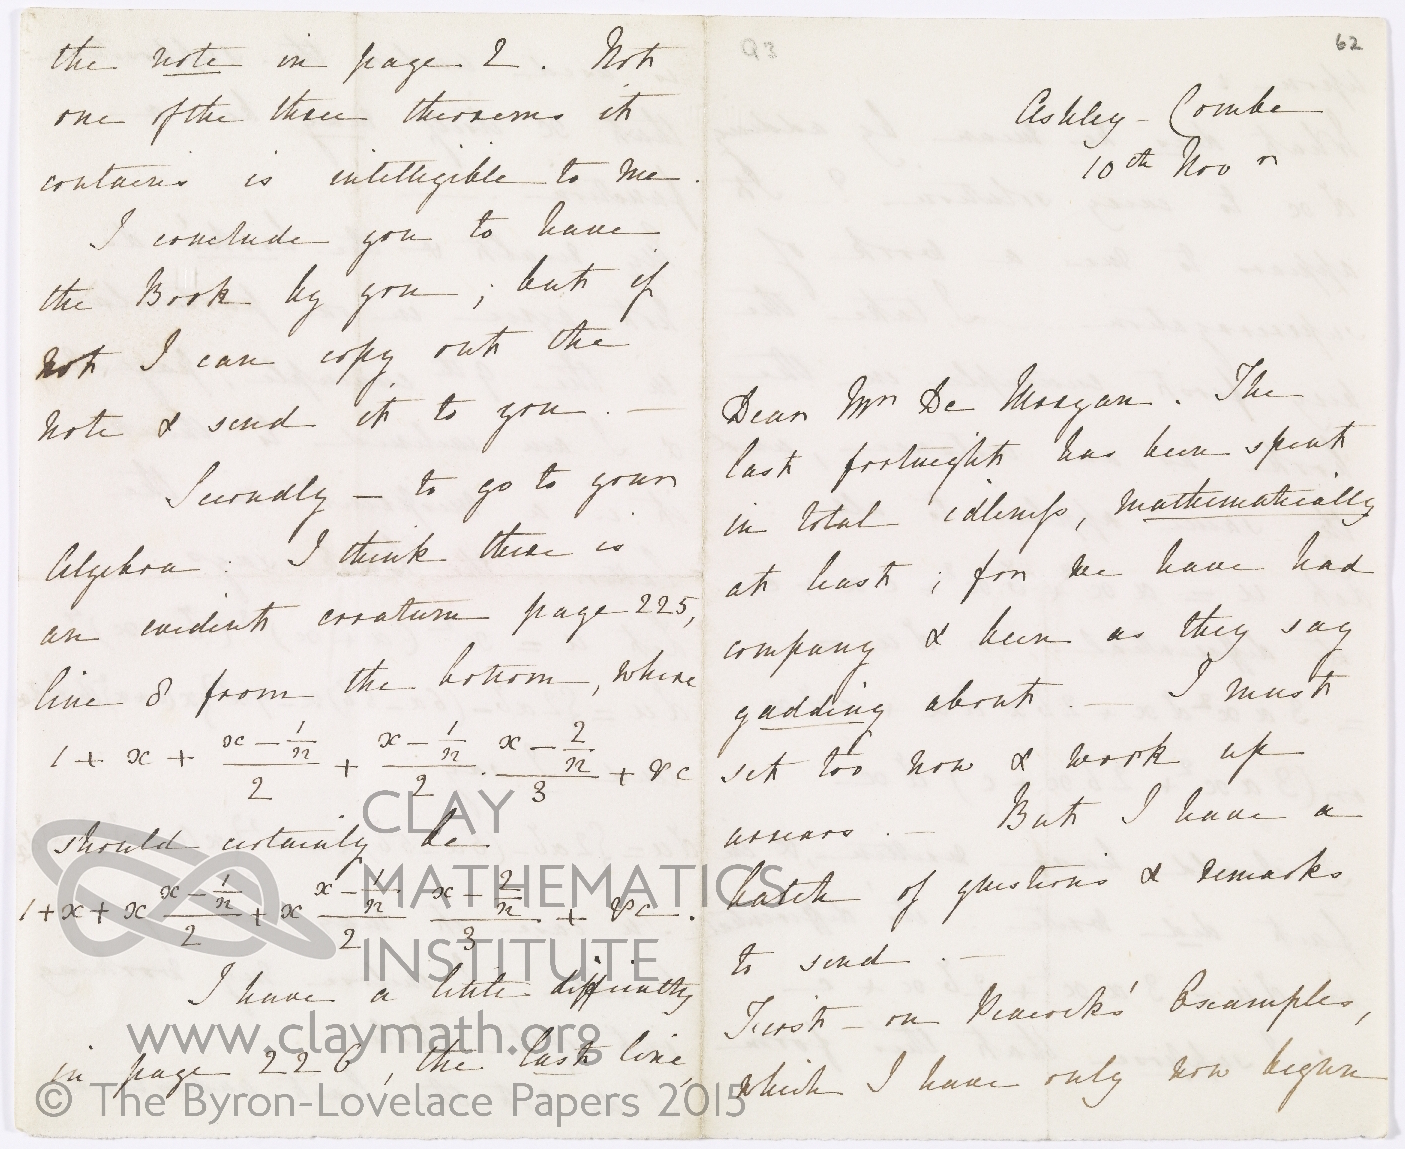 the note in page 2. Not
one of the three theorems it
contains is intelligible to me.
I conclude you to have
the Book by you; but if
not I can copy out the
note & send it to you. —
Secondly — to go to your
Algebra: I think there is
an evident erratum page 225,
line 8 from the bottom, where
1 + x + (x − 1/n)/2 + (x − 1/n)/2 . (x − 2/n)/3 + &c
should certainly be
1 + x + x (x − 1/n)/2 + x (x − 1/n)/2 (x − 2/n)/3 + &c.
I have a little difficulty
in page 226, the last line,
93
62
Ashley-Combe
10th Novr
Dear Mr De Morgan. The
last fortnight has been spent
in total idleness, mathematically
at least; for we have had
company & been as they say
gadding about. — I must
set too now & work up
arrears. — But I have a
batch of questions & remarks
to send. —
First — on Peacock's Examples,
which I have only now begun
CLAY
MATHEMATICS
INSTITUTE
www.claymath.org
© The Byron-Lovelace Papers 2015